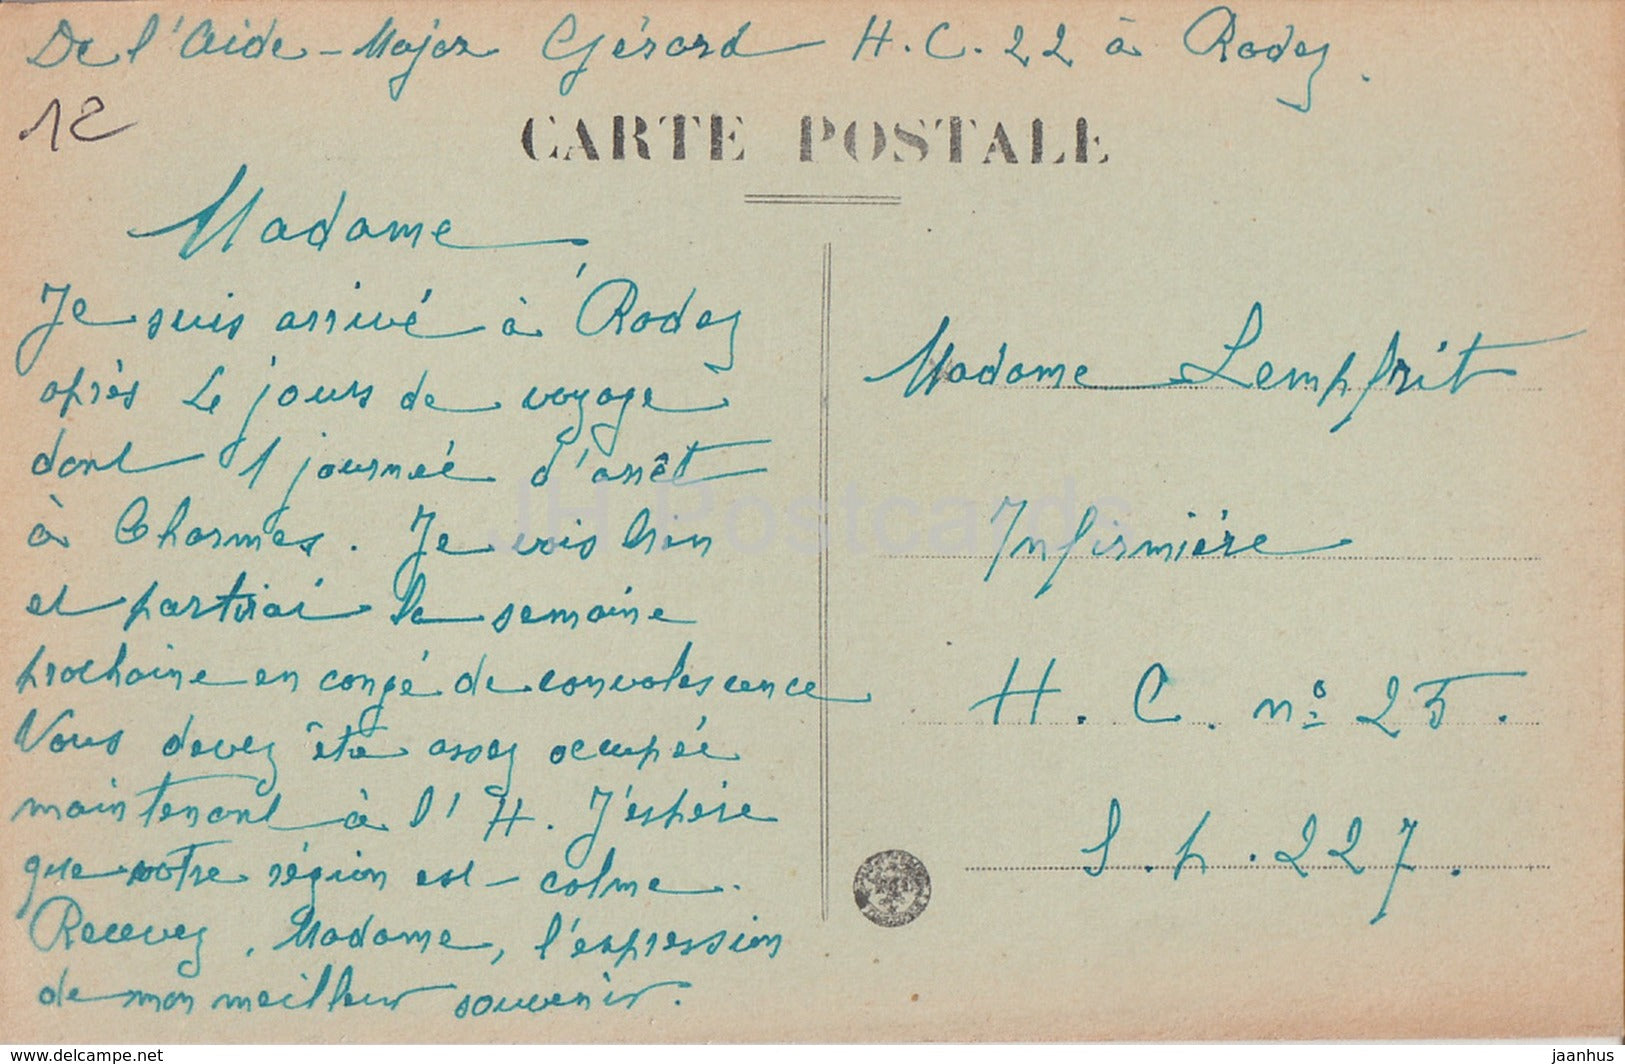 De l'Aide-Major Gérard H.C.22 à Rodez.
12
CARTE POSTALE
Madame,
Je suis arrivé à Rodez
après 4 jours de voyage
dont 1 journée d'arrêt
à Charmes. Je vais bien
et partirai la semaine
prochaine en congé de convalescence
Vous devez être assez occupée
maintenant à l'H. J'espère
que votre région est calme.
Recevez, Madame, l'expression
de mon meilleur souvenir.
Madame Lempfrit
Infirmière
H. C. nº 25.
S.p. 227.
JH Postcards
delcampe.com
jaanhus